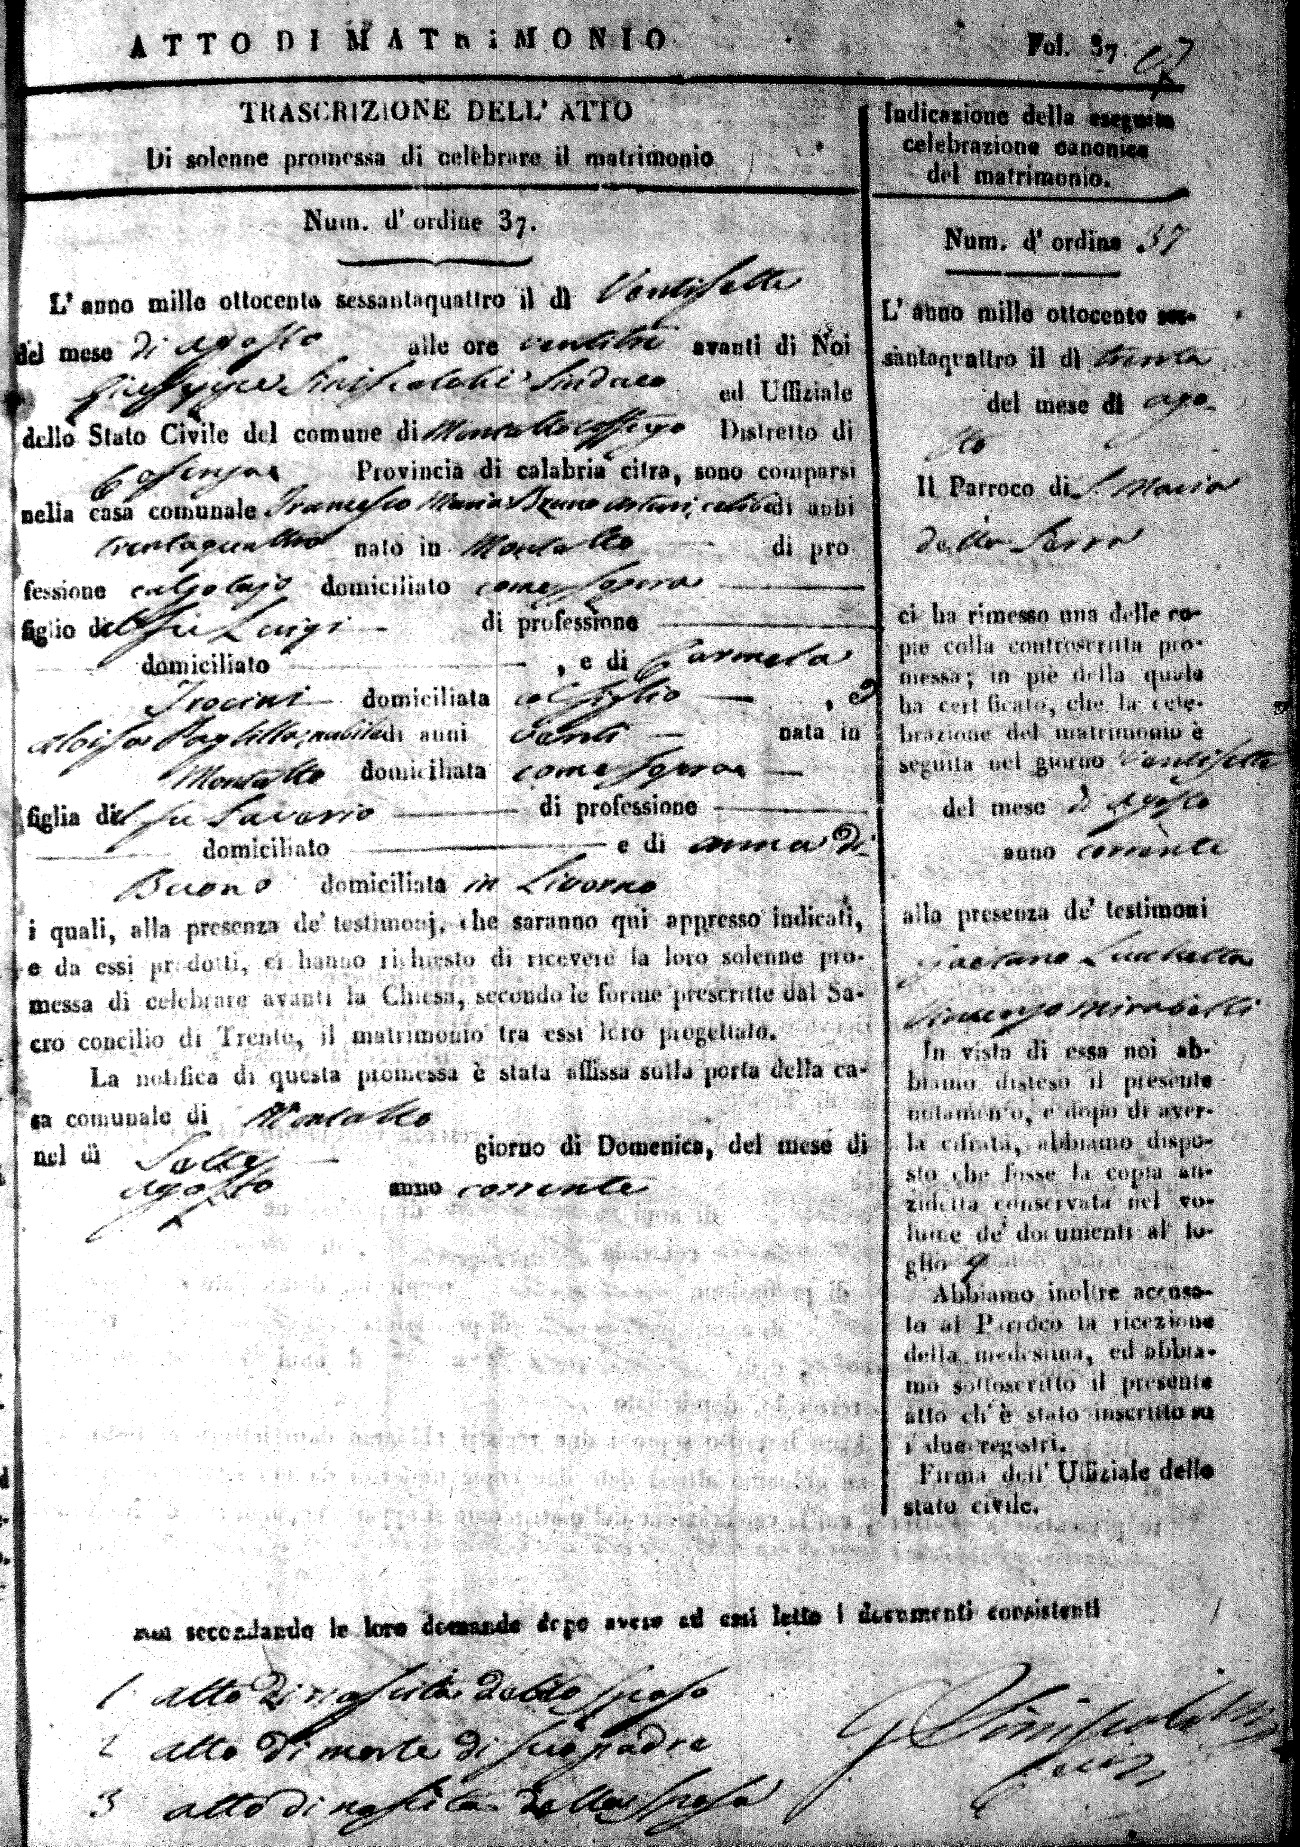 ATTO DI MATRIMONIO
Fol. 37.
TRASCRIZIONE DELL' ATTO
Di solenne promessa di celebrare il matrimonio
Num. d' ordine 37.
L' anno mille ottocento sessantaquattro il dì Ventisette
del mese di agosto alle ore ventitre avanti di Noi
Giuseppe Siniscalchi Sindaco ed Uffiziale
dello Stato Civile del comune di Montalto Distretto di
Cosenza Provincia di calabria citra, sono comparsi
nella casa comunale Francesco Maria Bruno celibe di anni
trentaquattro nato in Montalto di pro
fessione calzolajo domiciliato come sopra
figlio del fu Luigi di professione
domiciliato , e di Carmela
Trocini domiciliata col figlio , e
Aloisa Paglilla nubile di anni venti nata in
Montalto domiciliata come sopra
figlia del fu Saverio di professione
domiciliato e di Anna Di
Buono domiciliata in Livorno
i quali, alla presenza de' testimonj, che saranno qui appresso indicati,
e da essi prodotti, ci hanno richiesto di ricevere la loro solenne pro-
messa di celebrare avanti la Chiesa, secondo le forme prescritte dal Sa-
cro concilio di Trento, il matrimonio tra essi loro progettato.
La notifica di questa promessa è stata affissa sulla porta della ca-
sa comunale di Montalto
nel dì Sette giorno di Domenica, del mese di
Agosto anno corrente
Indicazione della eseguita
celebrazione canonica
del matrimonio.
Num. d' ordine 37
L' anno mille ottocento ses-
santaquattro il dì trenta
del mese di ago-
sto
Il Parroco di S. Maria
della Serra
ci ha rimesso una delle co-
pie colla controscritta pro-
messa; in piè della quale
ha certificato, che la cele-
brazione del matrimonio è
seguita nel giorno Ventisette
del mese di Agosto
anno corrente
alla presenza de' testimoni
Gaetano Lucchetta
Vincenzo Mirabelli
In vista di essa noi ab-
biamo disteso il presente
notamento, e dopo di aver-
la cifrata, abbiamo dispo-
sto che fosse la copia an-
zidetta conservata nel vo-
lume de' documenti al fo-
glio 9
Abbiamo inoltre accusa-
to al Parroco la ricezione
della medesima, ed abbia-
mo sottoscritto il presente
atto ch' è stato inscritto su
i due registri.
Firma dell' Uffiziale dello
stato civile.
noi secondando le loro domande dopo avere ad essi letto i documenti consistenti
1 atto di nascita dello sposo
2 atto di morte di suo padre
3 atto di nascita della sposa
G Siniscalchi